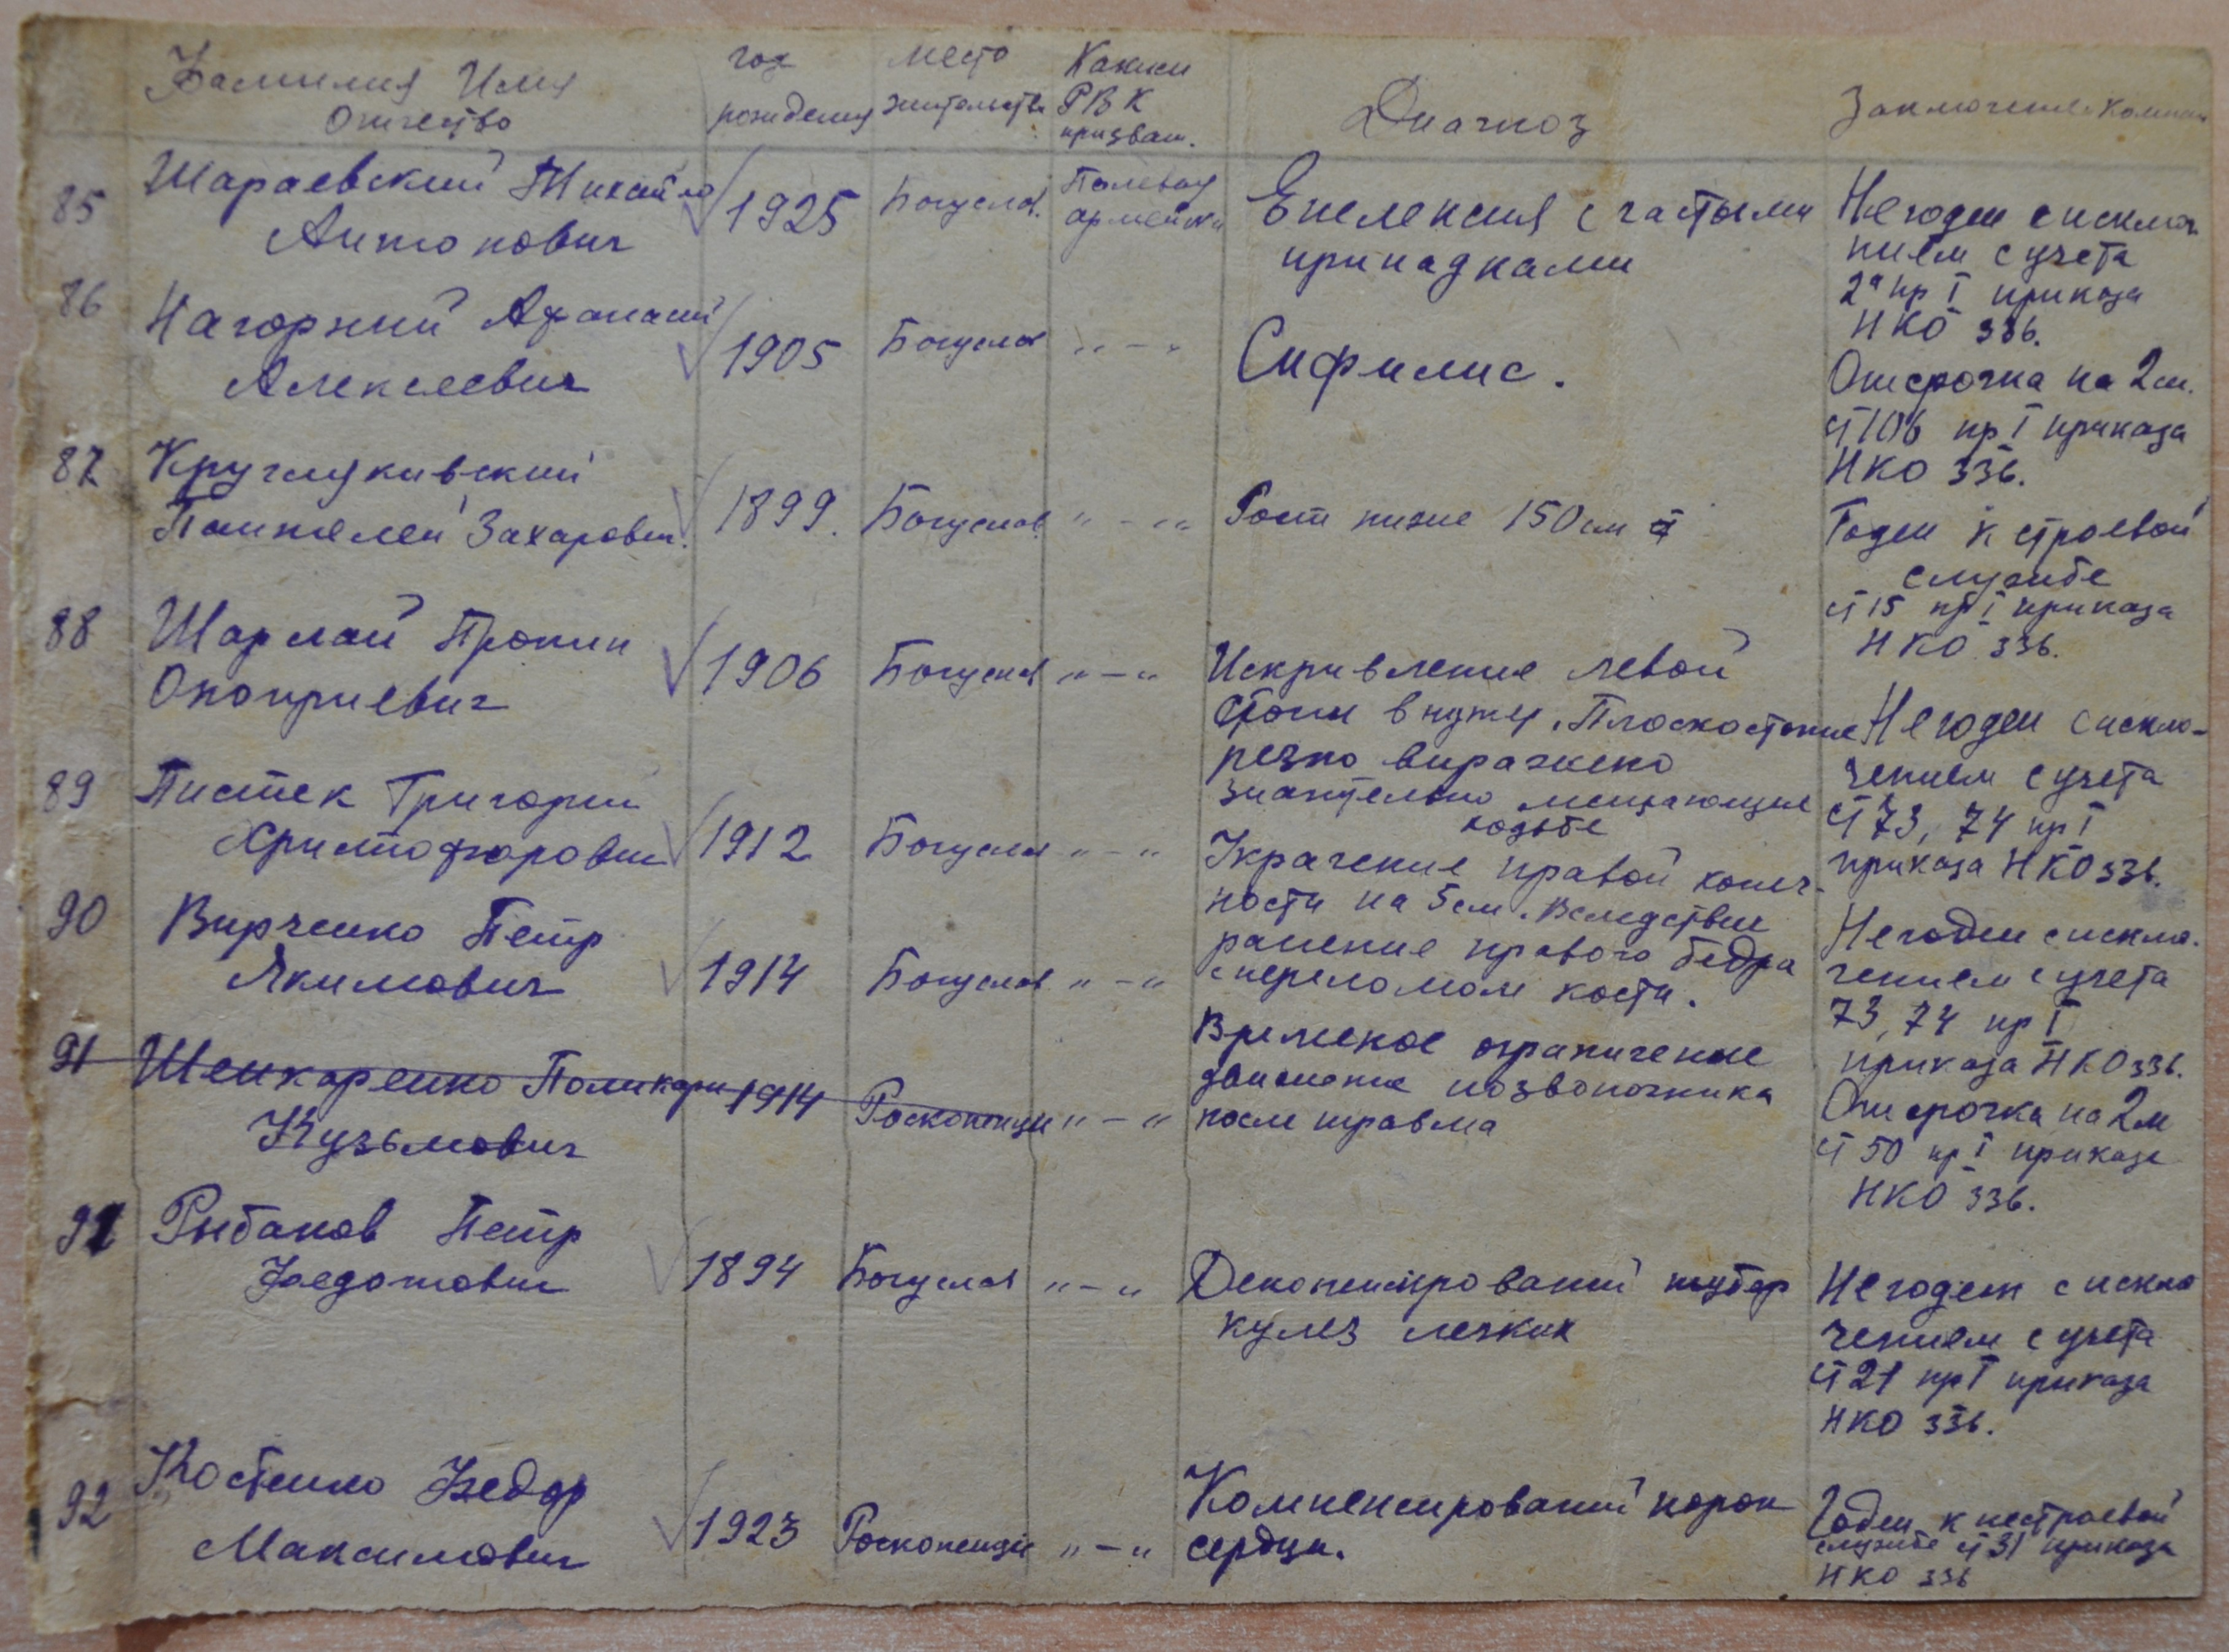 Фамилия Имя Отчество
год рождения
место жительства
Каким РВК призван.
Диагноз
85 Шараевский Михайло Антонович 1925 Богуслав. Полевой
Епелепсия с частыми припадками
Негоден с исключ
нием с учета
2а пр I приказа
НКО 336.
86 Нагорний Афанасий Алексеевич 1905 Богуслав " – "
Сифилис.
Отсрочка на 2 м.
ст 10б пр I приказа
НКО 336.
87
Пантелей Захарович. 1899. Богуслав. " – "
Рост ниже 150 см
Годен к строевой
службе
ст 15 пр I приказа
НКО 336.
88 Шарлай Прокип Оноприевич 1906 Богуслав " – "
Искривление левой
стопи внутр. Плоскостопие
резко виражено
значительно мешающие
ходьбе
Негоден с исклю-
чением с учета
ст 73, 74 пр I
приказа НКО 336.
89 Пистек Григорий Христофорович 1912 Богуслав " – "
Украчение правой конеч-
ности на 5 см. Вследствие
ранение правого бедра
с переломом кости.
Негоден с исклю-
чением с учета
73, 74 пр I
приказа НКО 336.
90 Вирченко Петр Якимович 1914 Богуслав " – "
Времекое ограничение
движение позвоночника
после травма
Отсрочка на 2 м
ст 50 пр I приказа
НКО 336.
91 Шенкаренко Поликарп Кузьмович 1914 Роскопенци " – "
91 Рыбаков Петр Федотович 1894 Богуслав " – "
Декопенсирований тубер
кулез легких
Негоден с исклю
чением с учета
ст 21 пр I приказа
НКО 336.
92 Костенко Федор Максимович 1923 Роскопенци " – "
Компенсированний порок
сердци.
Годен к нестроевой
службе ст 31 приказа
НКО 336